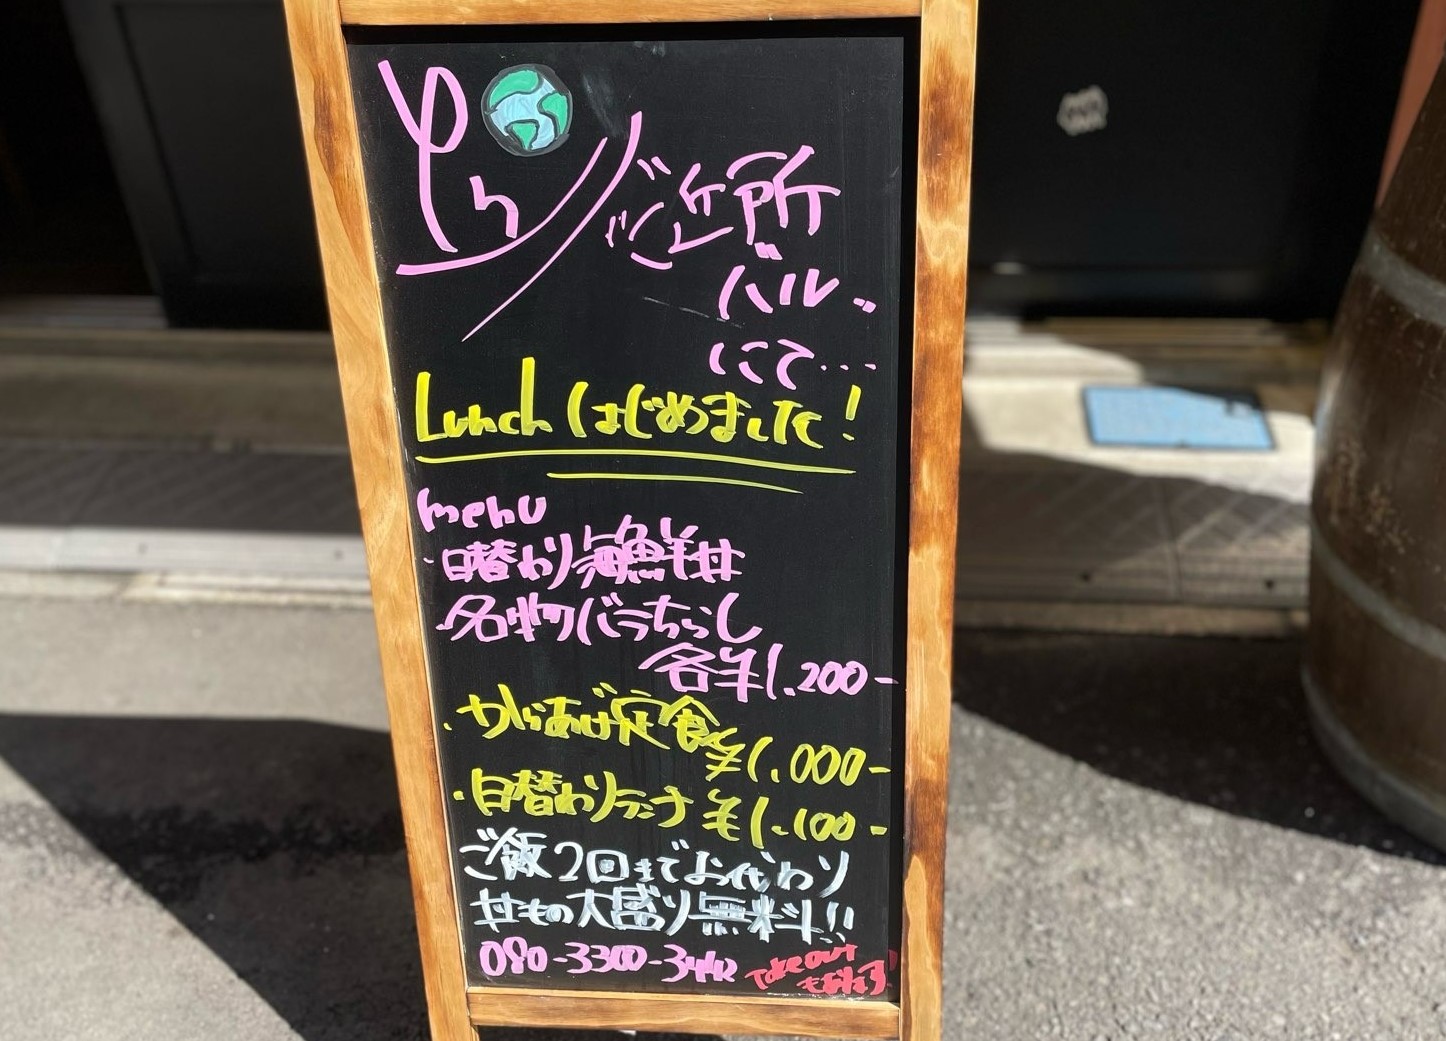 ご近所
バル
にて…
Lunchはじめました!
menu
・日替わり海鮮丼
・名物バラちらし
各¥1.200-
・からあげ定食
¥1.000-
・日替わりランチ ¥1.100-
ご飯2回までお代わり
丼もの大盛り無料!!
080-3300-
Take out
もあります